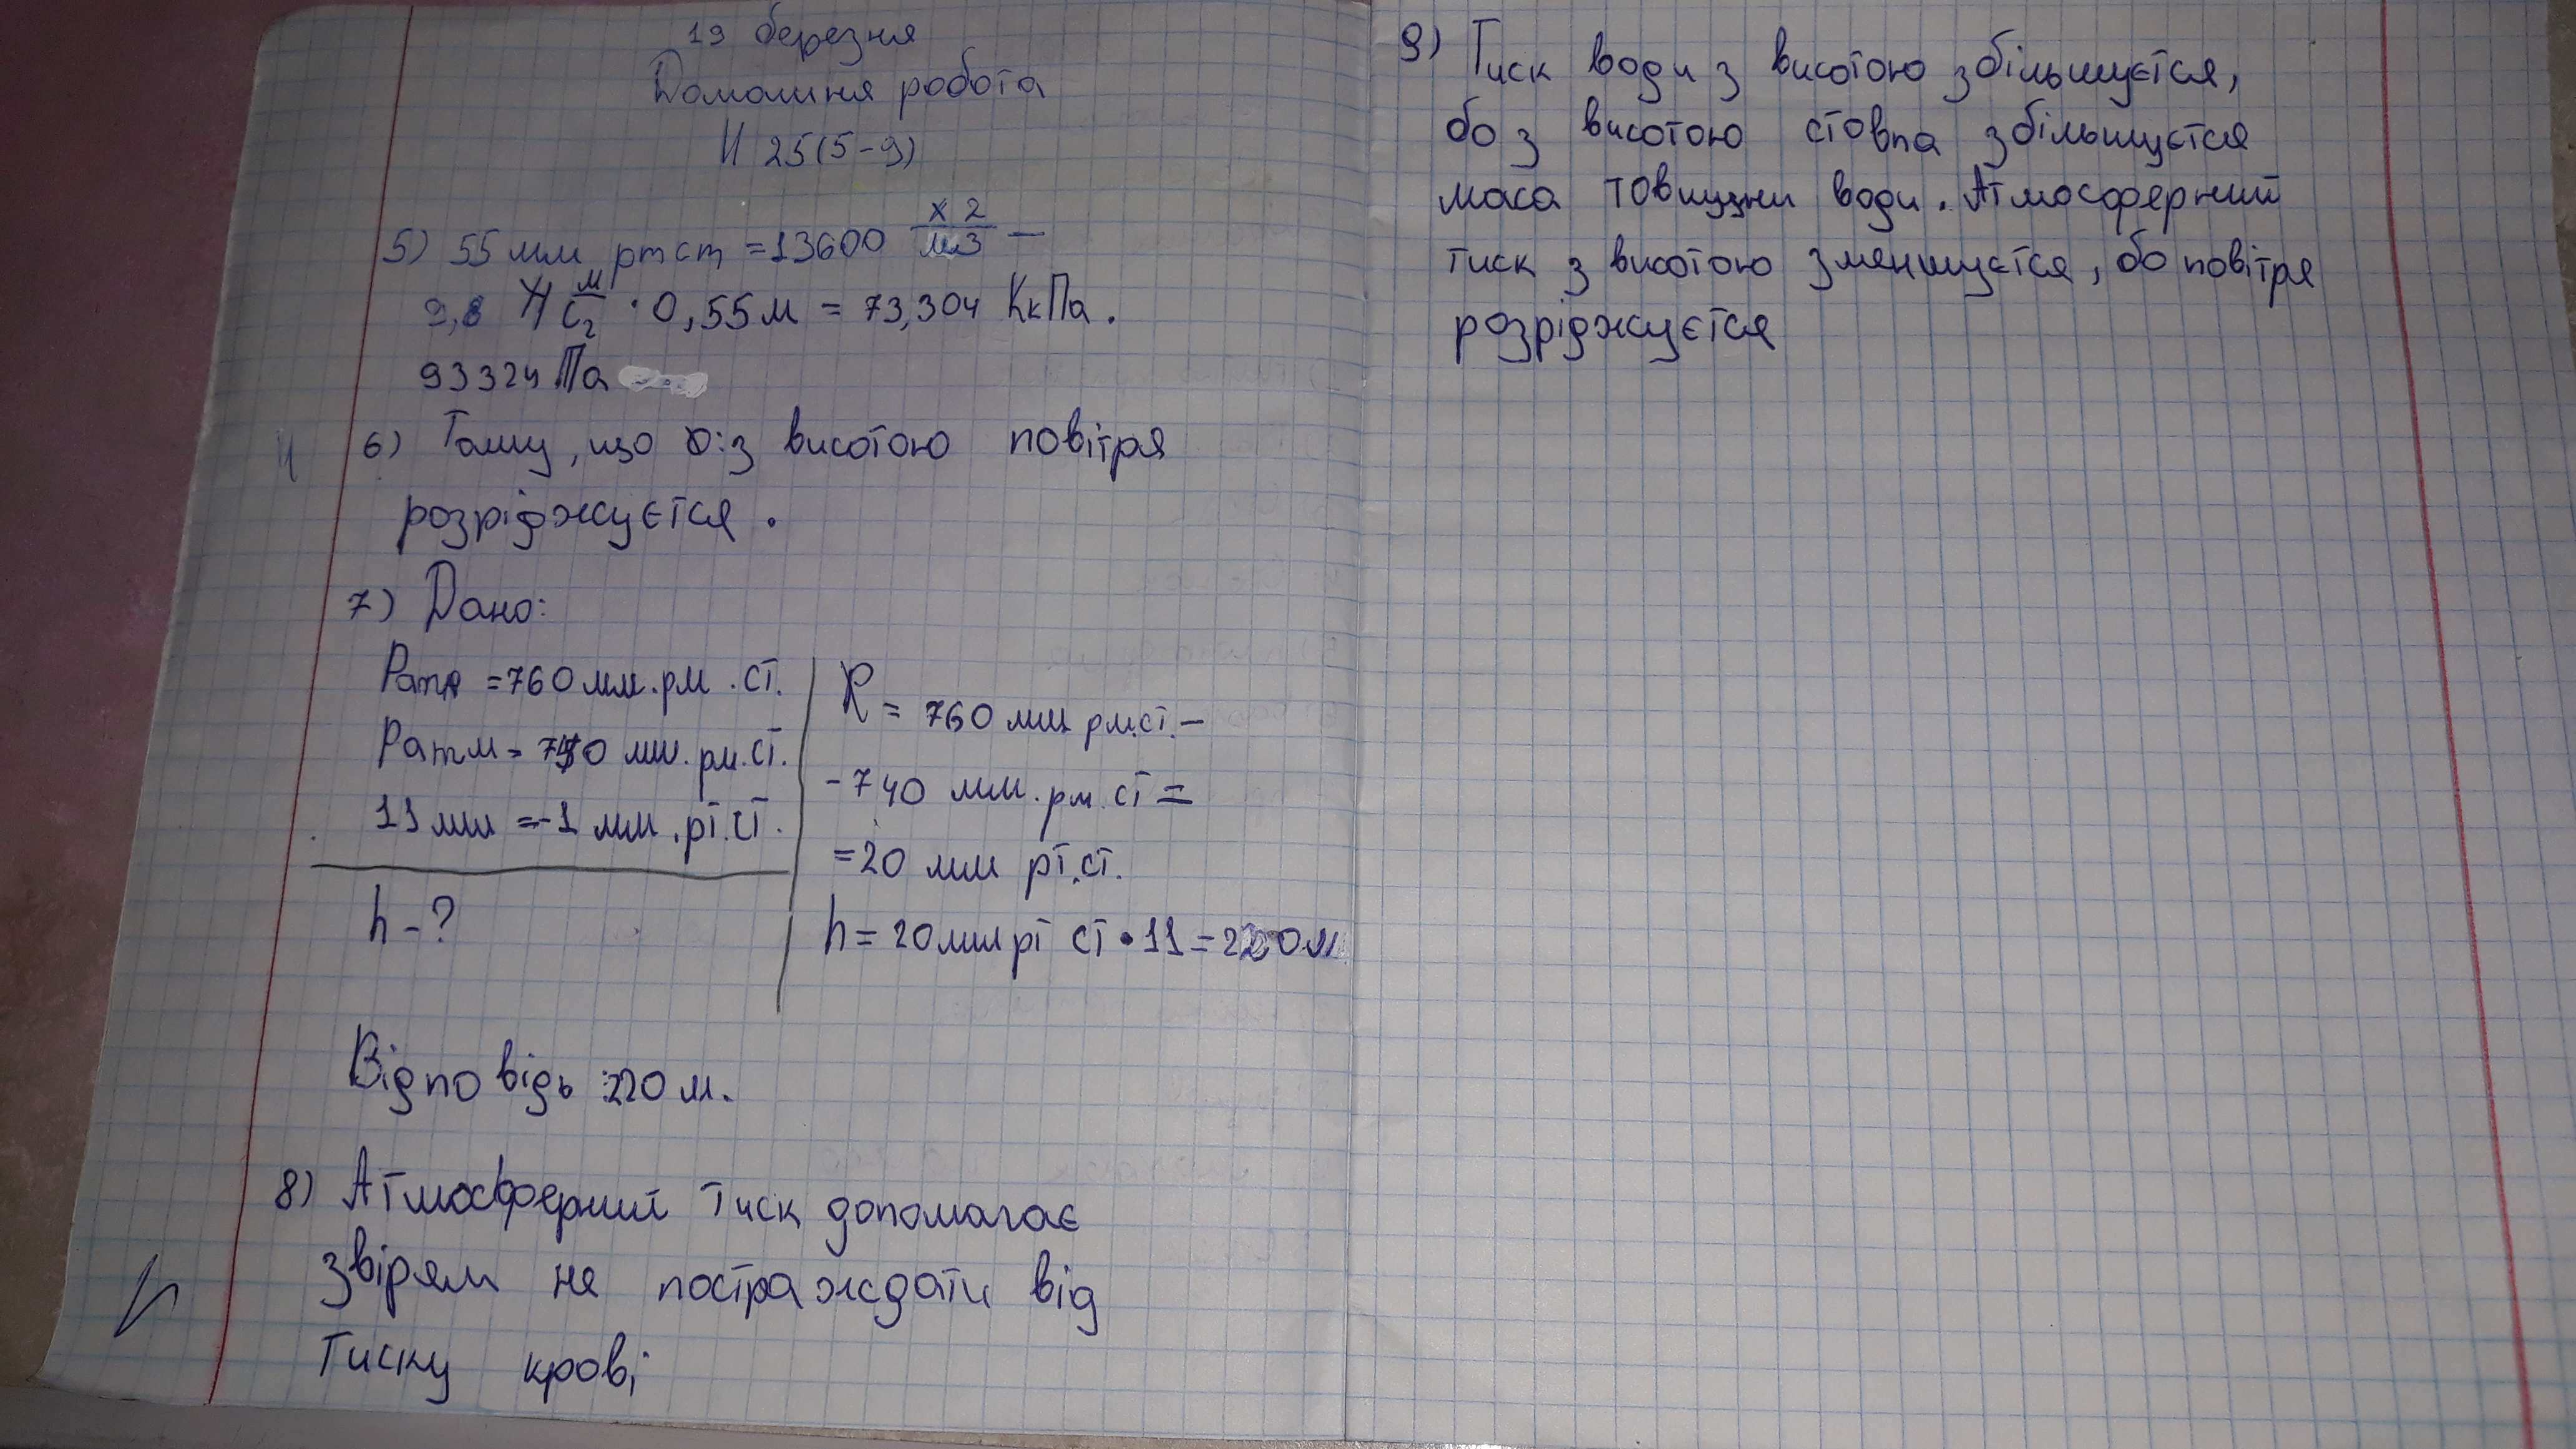 19 березня
Домашня робота
И 25(5-9)
5) 55 мм рт ст = 13600 х 2/м3 —
9,8 Н м/с2 · 0,55 м = 73,304 КкПа.
93324 Па
6) Тому, що з висотою повітря
розріджуєтся.
7) Дано:
Ратм = 760 мм. рм. ст.
Ратм = 740 мм. рм. ст.
11 мм = -1 мм. рт. ст.
h - ?
R = 760 мм рм.ст. —
- 740 мм. рм. ст =
= 20 мм рт. ст.
h = 20 мм рт ст • 11 = 220 м
Відповідь: 220 м.
8) Атмосферний тиск допомагає
звірям не постраждати від
тиску крові
9) Тиск води з висотою збільшуєтся,
бо з висотою стовпа збільшуєтся
маса товщини води. Атмосферний
тиск з висотою зменшуєтся, бо повітря
розріджуєтся